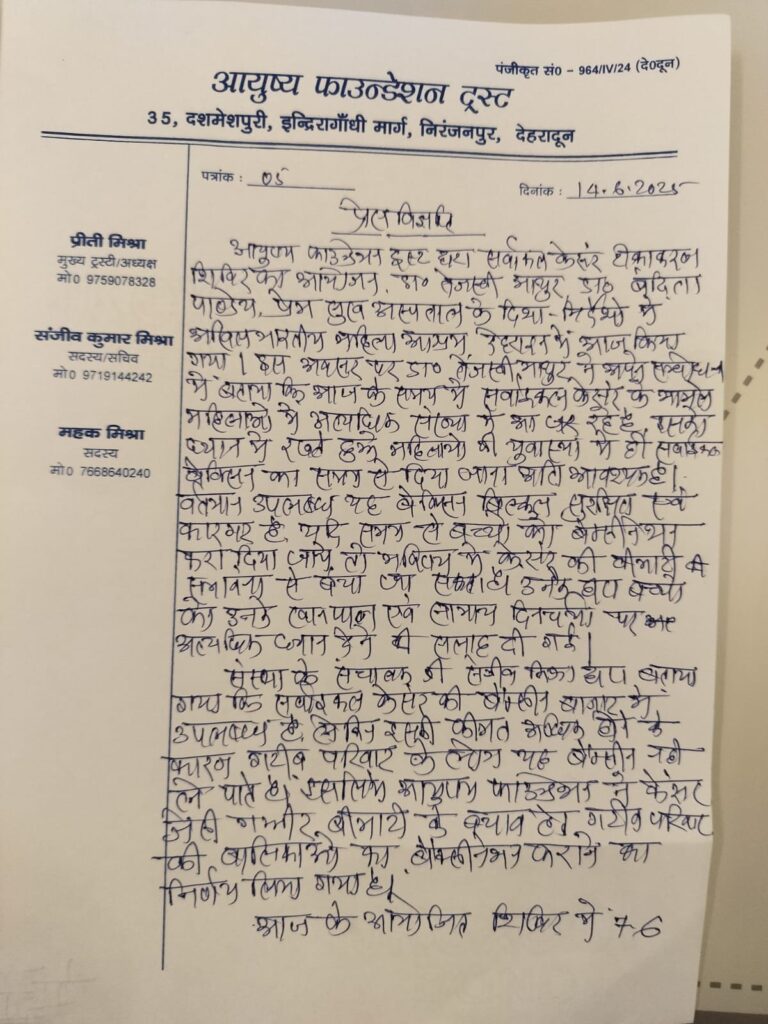 पंजीकृत सं० - 964/IV/24 (दे०दून)
आयुष्य फाउन्डेशन ट्रस्ट
35, दशमेशपुरी, इन्दिरागाँधी मार्ग, निरंजनपुर, देहरादून
पत्रांक : 05
दिनांक : 14.6.2025
प्रीती मिश्रा
मुख्य ट्रस्टी/अध्यक्ष
मो0 9759078328
संजीव कुमार मिश्रा
सदस्य/सचिव
मो0 9719144242
महक मिश्रा
सदस्य
मो0 7668640240
प्रेस विज्ञप्ति
आयुष्य फाउन्डेशन ट्रस्ट द्वारा सर्वाकल केंसर टीकाकरण
शिविर का आयोजन, डा० तेजस्वी डा०
पाण्डेय, प्रेम सुख अस्पताल के दिशा-निर्देशो में
अखिल भारतीय महिला आश्रम देहरादून में आज किया
गया। इस अवसर पर डा० तेजस्वी ने अपने सम्बोधन
में बताया कि आज के समय में सर्वाइकल केसर के मामले
महिलाओ में अत्यधिक संख्या में आ रहे है, इसको
ध्यान में रखते हुये महिलाओ की युवास्था में ही सर्वाइकल
वैक्सिन का समय से दिया जाना अति आवश्यक है।
वर्तमान उपलब्ध यह वेक्सिन बिल्कुल सुरक्षित एवं
कारगर है, यदि समय से बच्चो को वैक्सीनेशन
करा दिया जाये, तो भविष्य में केंसर की बीमारी की
सभावना से बचा जा सकता है। उनके द्वारा बच्चो
को उनके खानपान एवं सामान्य दिनचर्या पर
अत्यधिक ध्यान देने की सलाह दी गई।
संस्था के संचालक श्री संजीव मिश्रा द्वारा बताया
गया कि सर्वाइकल केसर की वैक्सीन बाजार में
उपलब्ध है, लेकिन इसकी कीमत अधिक होने के
कारण गरीब परिवार के लोग यह वैक्सीन नही
ले पाते है। इसलिये आयुष्य फाउन्डेशन ने केंसर
जैसी गम्भीर बीमारी के बचाव हेतु गरीब परिवार
की बालिकाओ का वैक्सीनेशन कराने का
निर्णय लिया गया है।
आज के आयोजित शिविर में 76